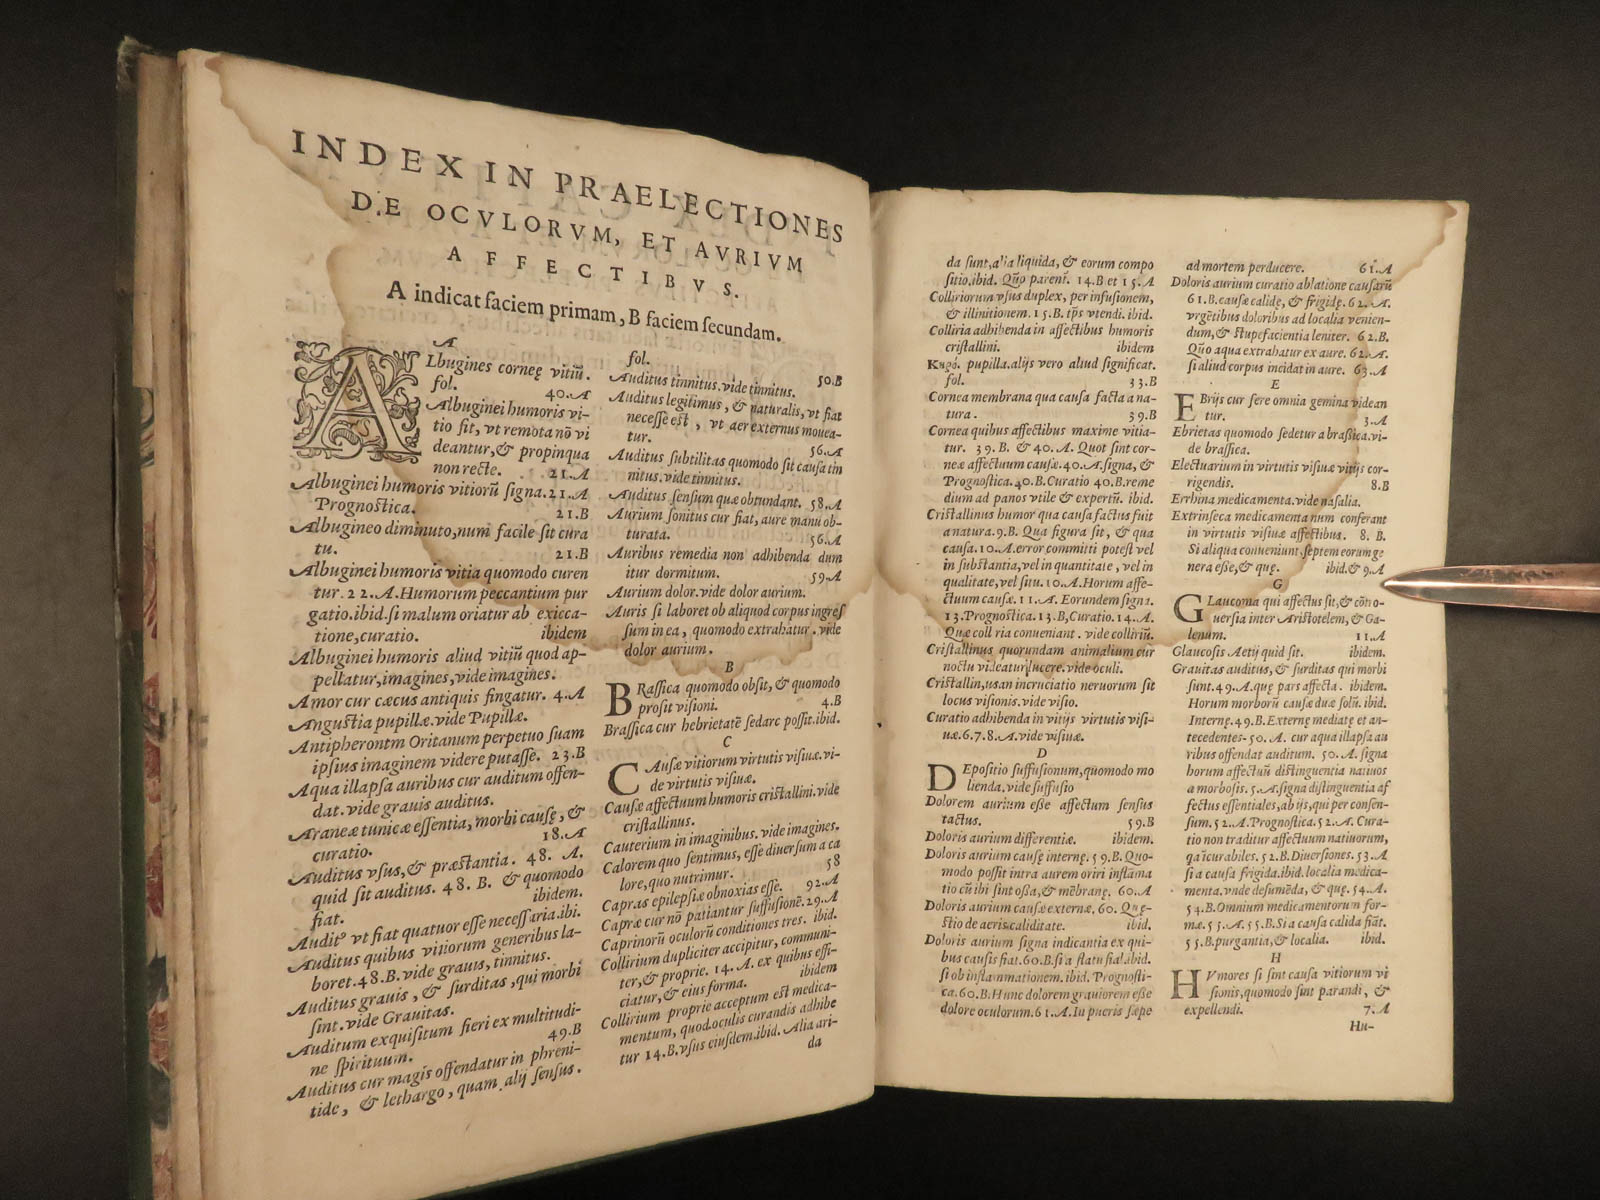 INDEX IN PRAELECTIONES
DE OCVLORVM, ET AVRIVM
AFFECTIBVS.
A indicat faciem primam, B faciem secundam.
A
ALbugines corneę vitiũ.
fol. 40.A
Albuginei humoris vi-
tio fit, vt remota nõ vi
deantur, & propinqua
non recte. 21.A
Albuginei humoris vitiorũ signa. 21.A
Prognostica. 21.B
Albugineo diminuto, num facile sit cura
tu. 21.B
Albuginei humoris vitia quomodo curen
tur. 22.A. Humorum peccantium pur
gatio. ibid. si malum oriatur ab exicca-
tione, curatio. ibidem
Albuginei humoris aliud vitiũ quod ap-
pellatur, imagines, vide imagines.
Amor cur cæcus antiquis fingatur. 4.A
Angustia pupillæ. vide Pupillæ.
Antipherontm Oritanum perpetuo suam
ipsius imaginem videre putasse. 23.B
Aqua illapsa auribus cur auditum offen-
dat. vide grauis auditus.
Araneæ tunicæ essentia, morbi causę, &
curatio. 18.A
Auditus vsus, & præstantia. 48. A.
quid sit auditus. 48. B. & quomodo
fiat. ibidem.
Auditꝰ vt fiat quatuor esse necessaria. ibi.
Auditus quibus vitiorum generibus la-
boret. 48.B. vide grauis, tinnitus.
Auditus grauis, & surditas, qui morbi
sint. vide Grauitas.
Auditum exquisitum fieri ex multitudi-
ne spirituum. 49.B
Auditus cur magis offendatur in phreni-
tide, & lethargo, quam alij sensus.
fol. 50.B
Auditus tinnitus. vide tinnitus.
Auditus legitimus, & naturalis, vt fiat
necesse est, vt aer externus mouea-
tur. 56.A
Auditus subtilitas quomodo sit causa tin
nitus. vide tinnitus.
Auditus sensum quæ obtundant. 58.A
Aurium sonitus cur fiat, aure manu ob-
turata. 56.A
Auribus remedia non adhibenda dum
itur dormitum. 59.A
Aurium dolor. vide dolor aurium.
Auris si laboret ob aliquod corpus ingres
sum in ea, quomodo extrahatur. vide
dolor aurium.
B
BRassica quomodo obsit, & quomodo
prosit visioni. 4.B
Brassica cur hebrietatẽ sedare possit. ibid.
C
CAusæ vitiorum virtutis visiuæ. vi-
de virtutis visiuæ.
Causæ affectuum humoris cristallini. vide
cristallinus.
Cauterium in imaginibus. vide imagines.
Calorem quo sentimus, esse diuersum a ca
lore, quo nutrimur. 58
Capras epilepsiæ obnoxias esse. 92.A
Capræ cur nõ patiantur suffusionẽ. 29.A
Caprinorũ oculorũ conditiones tres. ibid.
Collirium dupliciter accipitur, communi-
ter, & proprie. 14. A. ex quibus effi-
ciatur, & eius forma. ibidem
Collirium proprie acceptum est medica-
mentum, quod oculis curandis adhibe
tur 14.B. vsus eiusdem. ibid. Alia ari-
da
da sunt, alia liquida, & eorum compo
sitio. ibid. Quõ parent͂. 14.B et 15.A
Colliriorum vsus duplex, per infusionem,
& illinitionem. 15.B. tp̃s vtendi. ibid.
Colliria adhibenda in affectibus humoris
cristallini. ibidem
Κηρό. pupilla. alijs vero aliud significat.
fol. 33.B
Cornea membrana qua causa facta a na-
tura. 39.B
Cornea quibus affectibus maxime vitia-
tur. 39. B. & 40. A. Quot sint cor-
neæ affectuum causæ. 40.A. signa, &
Prognostica. 40.B. Curatio 40.B. reme
dium ad panos vtile & expertũ. ibid.
Cristallinus humor qua causa factus fuit
a natura. 9.B. Qua figura sit, & qua
causa. 10.A. error committi potest vel
in substantia, vel in quantitate, vel in
qualitate, vel situ. 10.A. Horum affe-
ctuum causæ. 11.A. Eorundem signa.
13. Prognostica. 13.B, Curatio. 14.A.
Quæ coll ria conueniant. vide colliriũ.
Cristallinus quorundam animalium cur
noctu videatur lucere. vide oculi.
Cristallin, us an incruciatio neruorum sit
locus visionis. vide visio.
Curatio adhibenda in vitijs virtutis visi-
uæ. 6.7.8.A. vide visiuæ.
D
DEpositio suffusionum, quomodo mo
lienda. vide suffusio
Dolorem aurium esse affectum sensus
tactus. 59.B
Doloris aurium differentiæ. ibidem.
Doloris aurium causę internę. 59.B. Quo-
modo possit intra aurem oriri inflama
tio cũ ibi sint ossa, & mẽbranę. 60.A
Doloris aurium causæ externæ. 60. Quę-
stio de aeris caliditate. ibid.
Doloris aurium signa indicantia ex qui-
bus causis fiat. 60.B. si a flatu fiat. ibid.
si ob inflammationem. ibid. Prognosti-
ca. 60.B. Hunc dolorem grauiorem esse
dolore oculorum. 61.A. In pueris sæpe
ad mortem perducere. 61.A
Doloris aurium curatio ablatione causarũ
61.B. causæ calidę, & frigidę. 62.A.
vrgẽtibus doloribus ad localia venien-
dum, & stupefacientia leniter. 62.B.
Quõ aqua extrahatur ex aure. 62.A.
si aliud corpus incidat in aure. 63.A
E
EBrijs cur fere omnia gemina videan
tur. 3.A
Ebrietas quomodo sedetur a brassica. vi-
de brassica.
Electuarium in virtutis visiuæ vitijs cor-
rigendis. 8.B
Errhina medicamenta. vide nasalia.
Extrinseca medicamenta num conferant
in virtutis visiuæ affectibus. 8. B.
Si aliqua conueniunt, septem eorum ge
nera esse, & quę. ibid. & 9.A
G
GLaucoma qui affectus sit, & cõtro-
uersia inter Aristotelem, & Ga-
lenum. 11.A
Glaucosis Aetij quid sit. ibidem.
Grauitas auditus, & surditas qui morbi
sunt. 49.A. quę pars affecta. ibidem.
Horum morborũ causæ duæ solũ. ibid.
Internę. 49.B. Externę mediatę et an-
tecedentes. 50.A. cur aqua illapsa au
ribus offendat auditum. 50.A. signa
horum affectuũ distinguentia natiuos
a morbosis. 5.A. signa distinguentia af
fectus essentiales, ab ijs, qui per consen-
sum. 52.A. Prognostica. 52.A. Cura-
tio non traditur affectuum natiuorum,
qa ĩcurabiles. 52.B. Diuersiones. 53.A
si a causa frigida. ibid. localia medica-
menta. vnde desumẽda, & quę. 54.A.
54.B. Omnium medicamentorum for-
mæ. 55.A. 55.B. Si a causa calida fiãt.
55.B. purgantia, & localia. ibid.
H
HVmores si sint causa vitiorum vi
sionis, quomodo sint parandi, &
expellendi. 7.A
Hu-